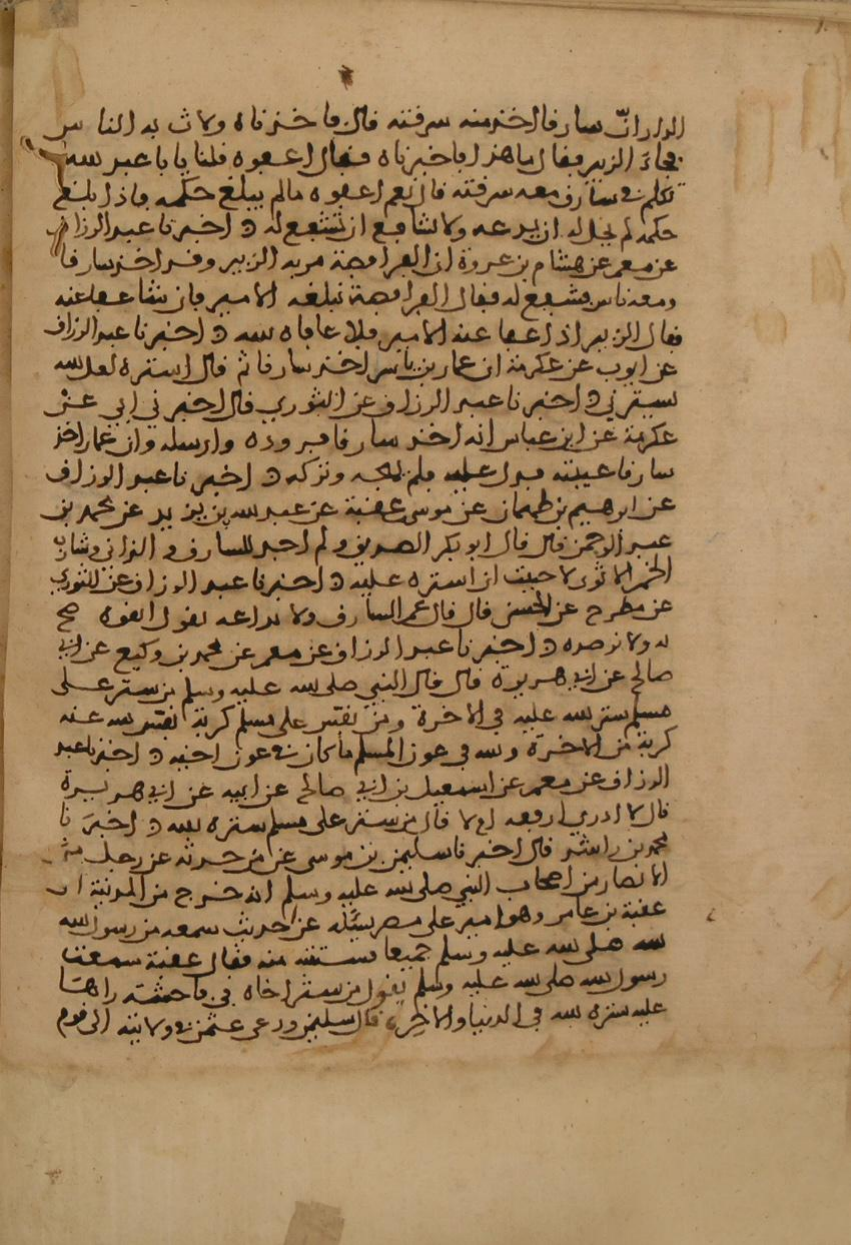 الدار ان سارقا اخذ منه سرقته قال فاخذناه ولاث به الناس
فجاء الزبير فقال ما هذا فاخبرناه فقال اعفوه فلنا يابا عبد الله
تكلم في سارق معه سرقته قال نعم اعفوه ما لم يبلغ حكمه فاذا بلغ
حكمه لم يحل له ان يدعه ولا شافع ان يشفع له اخبرنا عبد الرزاق
عن معمر عن هشام بن عروة ان الفرافصة مر به الزبير وقد اخذ سارقا
ومعه ناس فشفع له فقال الفرافصة نبلغه الامير فان شا عفا عنه
فقال الزبير اذا عفا عنه الامير فلا عافاه الله اخبرنا عبد الرزاق
عن ايوب عن عكرمة ان عمار بن ياسر اخذ سارقا ثم قال استره لعل الله
يسترني اخبرنا عبد الرزاق عن الثوري قال اخبرني ابي عن
عكرمة عن ابن عباس انه اخذ سارقا فزوده وارسله وان عمارا اخذ
سارقا عيبته فدل عليه فلم يهجه وتركه اخبرنا عبد الرزاق
عن ابرهيم بن طهمان عن موسى بن عقبة عن عبد الله بن يزيد عن محمد بن
عبد الرحمن قال قال ابو بكر الصديق لو لم اجد للسارق و الزاني وشارب
الخمر الا ثوبي لاحببت ان استره عليه اخبرنا عبد الرزاق عن الثوري
عن مطرح عن الحسن قال قال عمر السارق ولا تراعه يقول انفوه صح
له ولا ترصده اخبرنا عبد الرزاق عن معمر عن محمد بن وكيع عن ابي
صالح عن ابي هريرة قال قال النبي صلى الله عليه وسلم من ستر على
مسلم ستر الله عليه في الاخرة ومن نفس على مسلم كربة نفس الله عنه
كربة من الاخرة والله في عون المسلم ما كان في عون اخيه اخبرنا عبد
الرزاق عن معمر عن اسمعيل بن ابي صالح عن ابيه عن ابي هريرة
قال لا ادري ارفعه ام لا قال من ستر على مسلم ستره الله اخبرنا
محمد بن راشد قال اخبرنا سليمن بن موسى عن من حدثه عن رجل من
الانصار من اصحاب النبي صلى الله عليه وسلم انه خرج من المدينة الى
عقبة بن عامر وهو امير على مصر يسئله عن حديث سمعه من رسول الله
الله صلى الله عليه وسلم جميعا منه فقال عقبة سمعت
رسول الله صلى الله عليه وسلم يقول من ستر اخاه في فاحشة راها
عليه ستره الله في الدنيا والاخرة قال سليمن ودعى عثمن في ولايته الى قوم